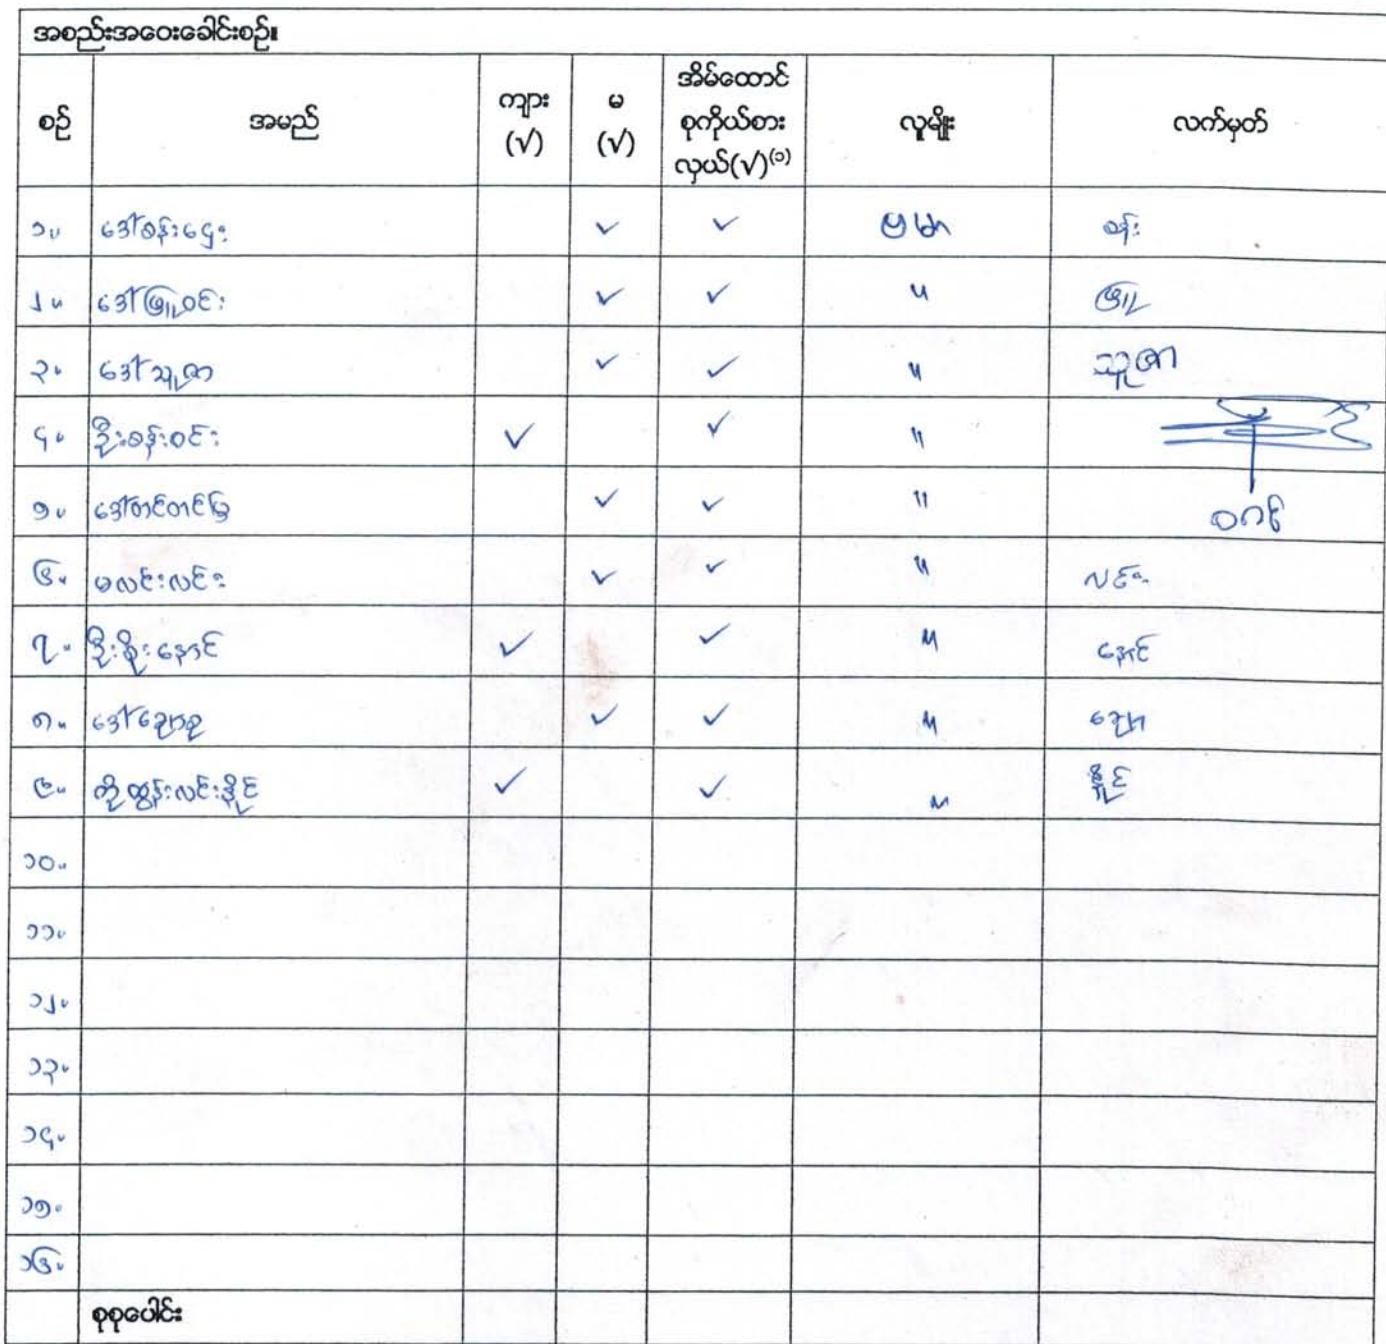 အစည်းအဝေးခေါင်းစဉ်။
စဉ် အမည် ကျား (√) မ (√) အိမ်ထောင်စုကိုယ်စားလှယ်(√)⁽¹⁾ လူမျိုး လက်မှတ်
၁။ ဒေါ်ခန်းဌေး ✓ ✓ ဗမာ ခန်း
၂။ ဒေါ်ဖြူဝင်း ✓ ✓ " ဖြူ
၃။ ဒေါ်သူဇာ ✓ ✓ " သူဇာ
၄။ ဦးခန်းဝင်း ✓ ✓ "
၅။ ဒေါ်တင်တင်မြ ✓ ✓ "
၆။ မလင်းလင်း ✓ ✓ " လင်း
၇။ ဦးစိုးနောင် ✓ ✓ " နောင်
၈။ ဒေါ်ချောချော ✓ ✓ " ချော
၉။ ကိုထွန်းလင်းနိုင် ✓ ✓ " နိုင်
၁၀။
၁၁။
၁၂။
၁၃။
၁၄။
၁၅။
၁၆။
စုစုပေါင်း